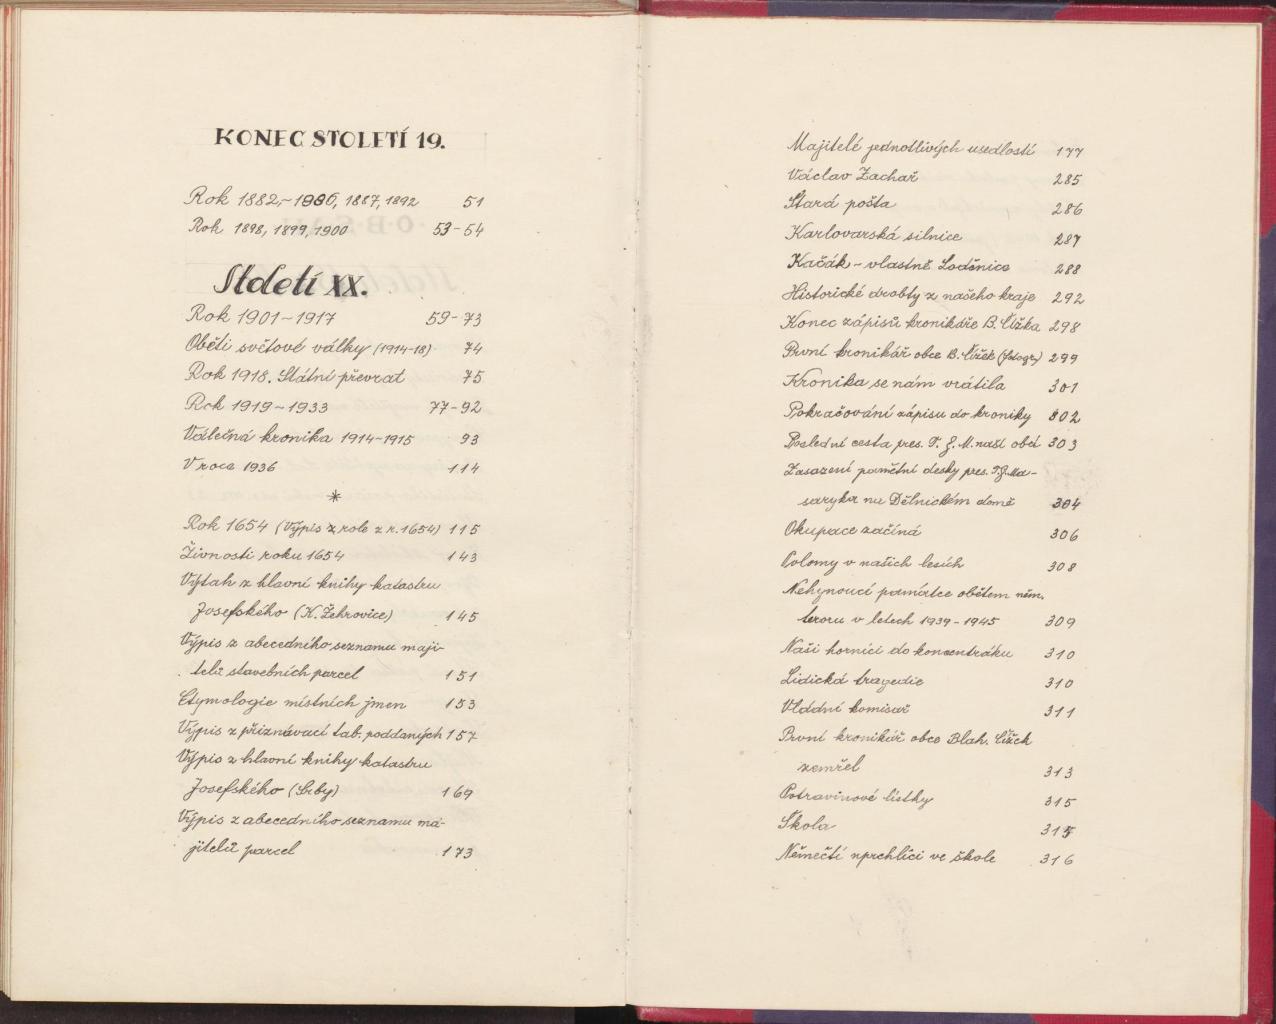 KONEC STOLETÍ 19.
Rok 1882,- 1886, 1887, 1892 51
Rok 1898, 1899, 1900 53-54
Století XX.
Rok 1901-1917 59-73
Oběti světové války (1914-18) 74
Rok 1918. Státní převrat 75
Rok 1919-1933 77-92
Válečná kronika 1914-1915 93
V roce 1936 114
*
Rok 1654 (Výpis z role z r. 1654) 115
Živnosti roku 1654 143
Výtah z hlavní knihy katastru
Josefského (K. Žehrovice) 145
Výpis z abecedního seznamu maji-
telů stavebních parcel 151
Etymologie místních jmen 153
Výpis z přiznávací tab. poddaných 157
Výpis z hlavní knihy katastru
Josefského (Srby) 169
Výpis z abecedního seznamu ma-
jitelů parcel 173
Majitelé jednotlivých usedlostí 177
Václav Zachař 285
Stará pošta 286
Karlovarská silnice 287
Kačák - vlastně Loděnice 288
Historické drobty z našeho kraje 292
Konec zápisů kronikáře B. Čížka 298
První kronikář obce B. Čížek (fotogr.) 299
Kronika se nám vrátila 301
Pokračování zápisu do kroniky 302
Poslední cesta pres. T. G. M. naší obcí 303
Zasazení pamětní desky pres. T. G. Ma-
saryka na Dělnickém domě 304
Okupace začíná 306
Polomy v našich lesích 308
Nehynoucí památce obětem něm.
teroru v letech 1939-1945 309
Naši horníci do koncentráku 310
Lidická tragedie 310
Vládní komisař 311
První kronikář obce Blah. Čížek
zemřel 313
Potravinové lístky 315
Škola 315
Němečtí uprchlíci ve škole 316